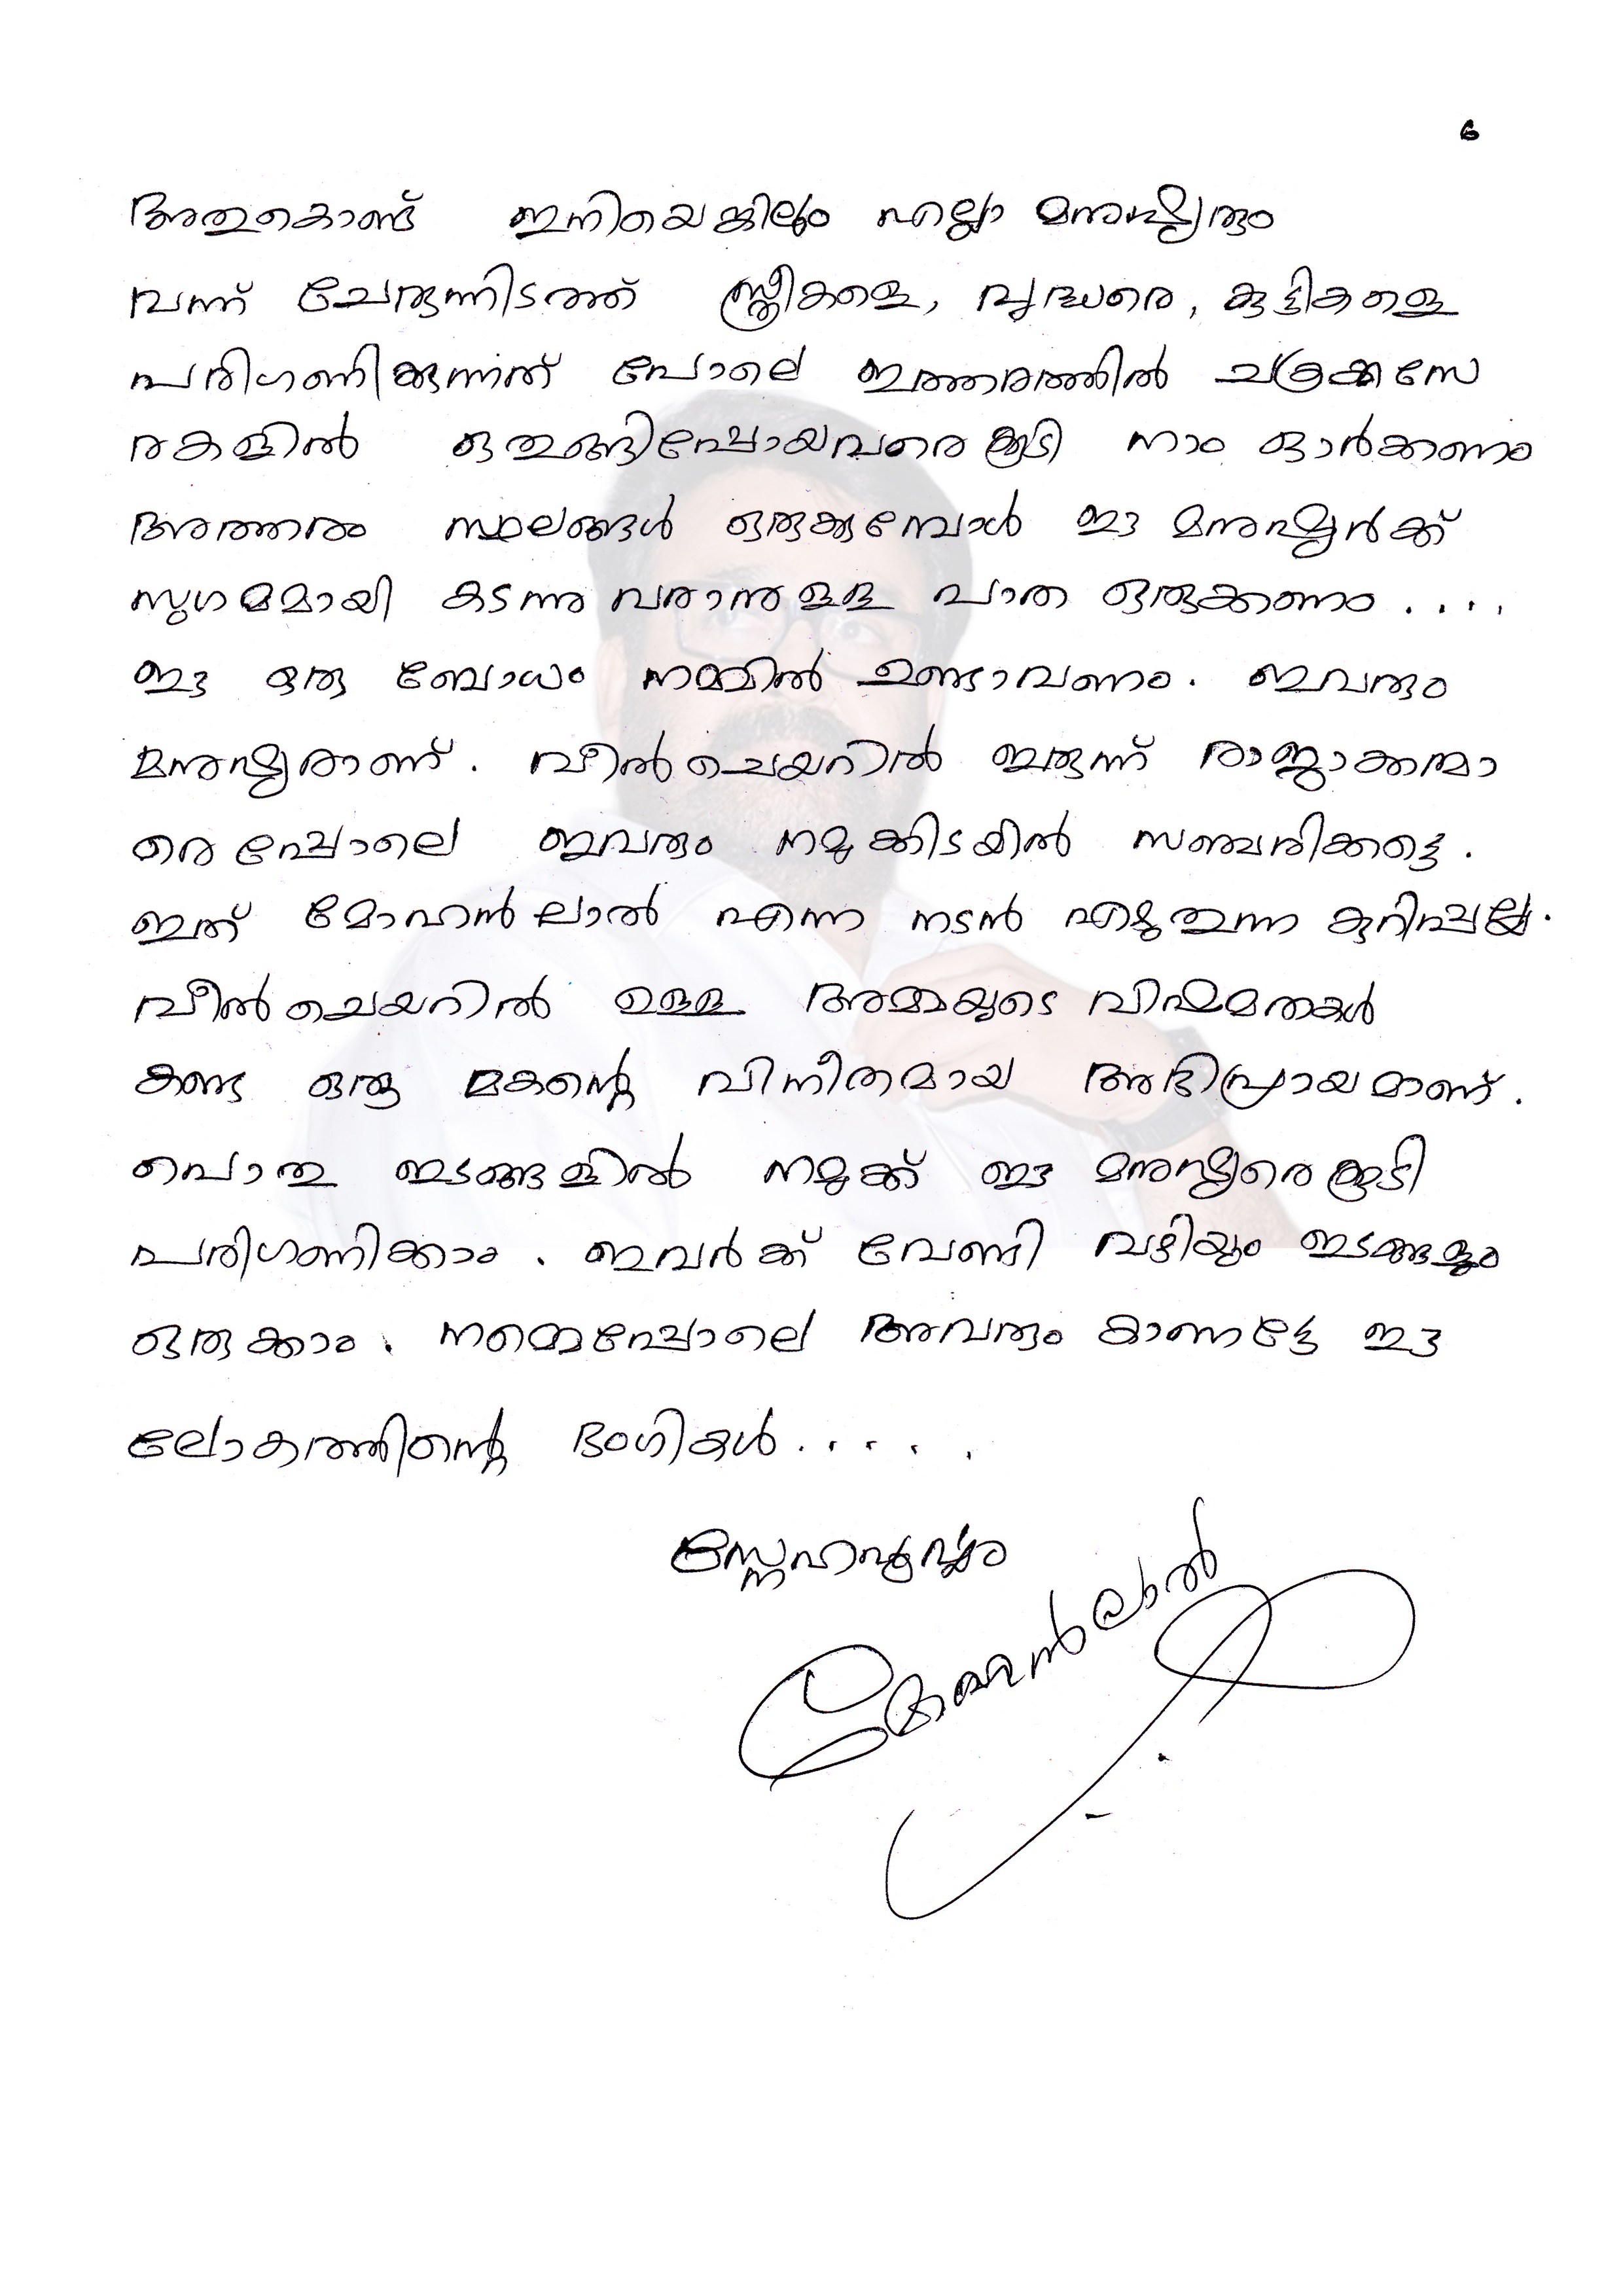 6
അതുകൊണ്ട് ഇനിയെങ്കിലും എല്ലാ മനുഷ്യരും
വന്ന് ചേരുന്നിടത്ത് സ്ത്രീകളെ, വൃദ്ധരെ, കുട്ടികളെ
പരിഗണിക്കുന്നത് പോലെ ഇത്തരത്തിൽ ചക്രക്കസേ
രകളിൽ ഒതുങ്ങിപ്പോയവരെക്കൂടി നാം ഓർക്കണം
അത്തരം സ്ഥലങ്ങൾ ഒരുക്കുമ്പോൾ ഈ മനുഷ്യർക്ക്
സുഗമമായി കടന്നു വരാനുള്ള പാത ഒരുക്കണം....
ഈ ഒരു ബോധം നമ്മിൽ ഉണ്ടാവണം. ഇവരും
മനുഷ്യരാണ്. വീൽചെയറിൽ ഇരുന്ന് രാജാക്കന്മാ
രെപ്പോലെ ഇവരും നമുക്കിടയിൽ സഞ്ചരിക്കട്ടെ.
ഇത് മോഹൻലാൽ എന്ന നടൻ എഴുതുന്ന കുറിപ്പല്ല.
വീൽചെയറിൽ ഉള്ള അമ്മയുടെ വിഷമതകൾ
കണ്ട ഒരു മകന്റെ വിനീതമായ അഭിപ്രായമാണ്.
പൊതു ഇടങ്ങളിൽ നമുക്ക് ഈ മനുഷ്യരെക്കൂടി
പരിഗണിക്കാം. ഇവർക്ക് വേണ്ടി വഴിയും ഇടങ്ങളും
ഒരുക്കാം. നമ്മെപ്പോലെ അവരും കാണട്ടേ ഈ
ലോകത്തിന്റെ ഭംഗികൾ.....
സ്നേഹപൂർവ്വം
മോഹൻലാൽ